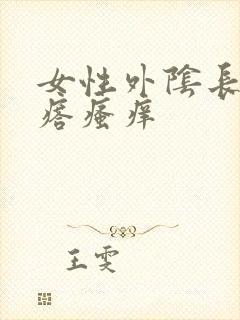 女性外陰長
瘩瘙痒
王雯